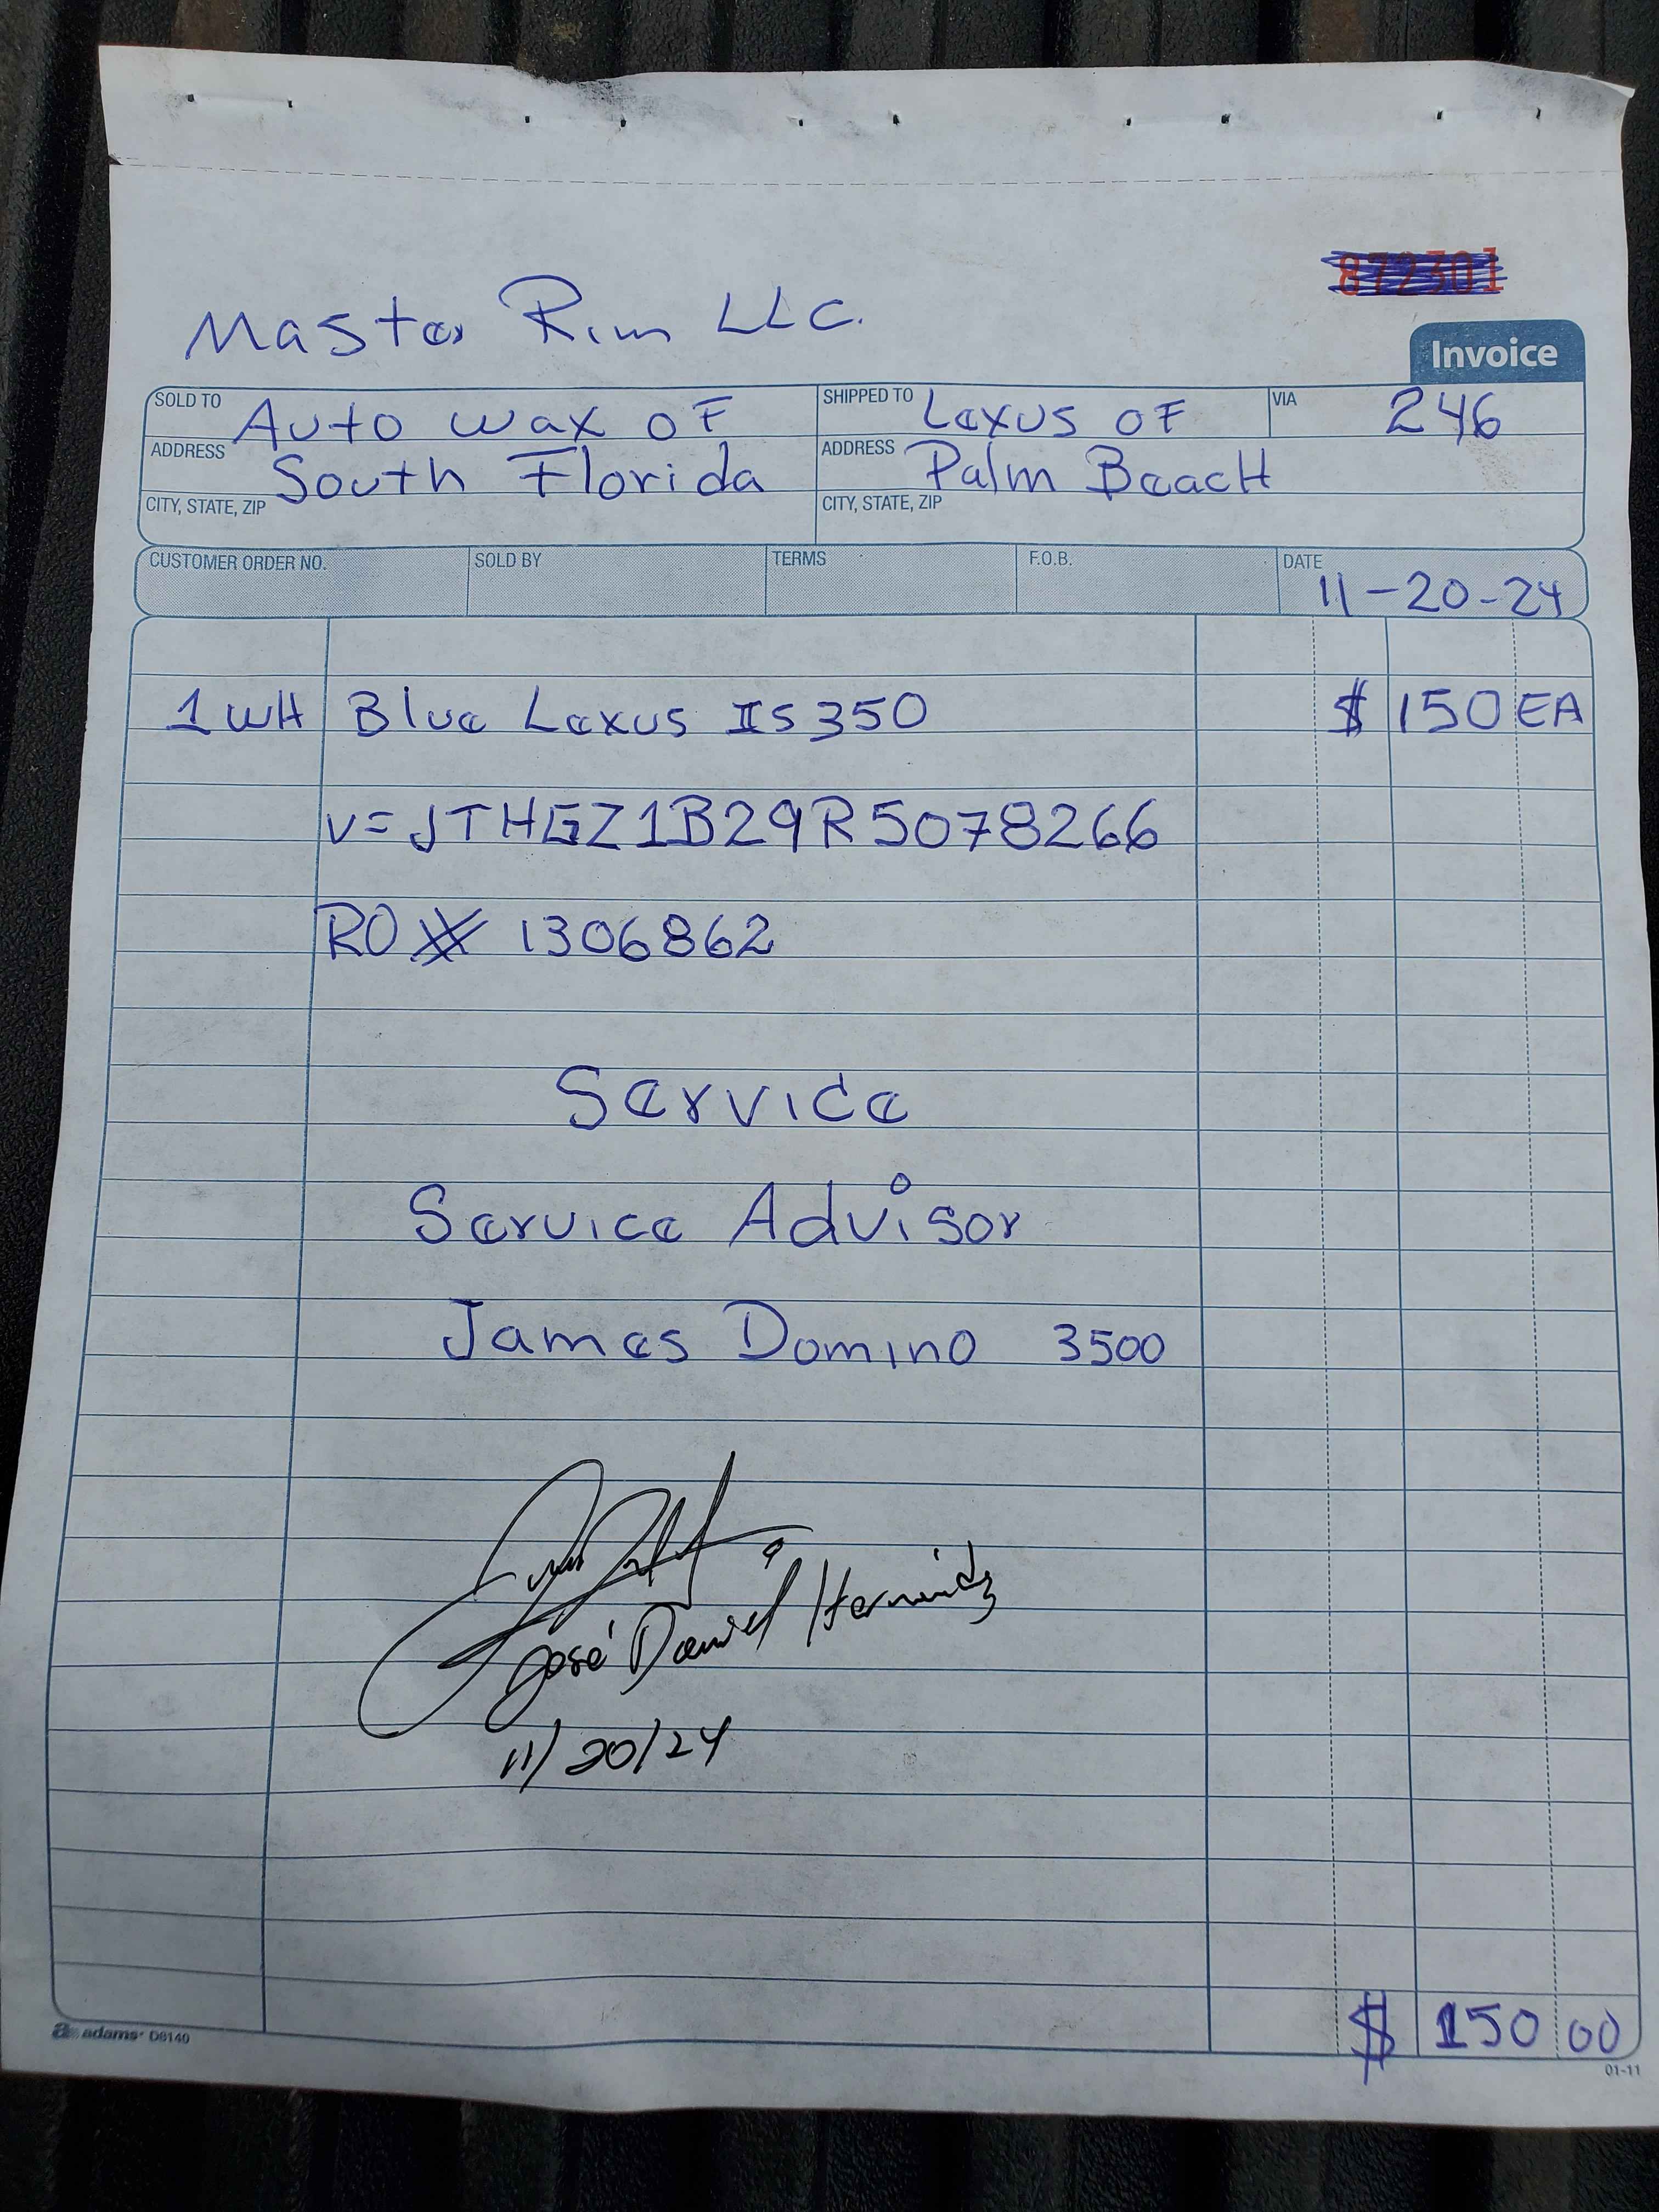 872301
Master Rim LLC.
Invoice
SOLD TO Auto Wax OF
SHIPPED TO Lexus OF
VIA 246
ADDRESS South Florida
ADDRESS Palm BeacH
CITY, STATE, ZIP
CITY, STATE, ZIP
CUSTOMER ORDER NO. SOLD BY TERMS F.O.B. DATE 11-20-24
1 WH Blue Lexus IS350 $ 150 EA
V= JTHGZ1B29R5078266
RO # 1306862
Service
Service Advisor
James Domino 3500
José Daniel Hernández
11/20/24
$ 150 00
adams D8140
01-11